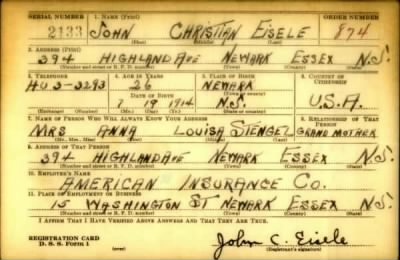 SERIAL NUMBER 1. NAME (Print) ORDER NUMBER
2133 JOHN CHRISTIAN EISELE 874
(First) (Middle) (Last)
2. ADDRESS (Print)
394 HIGHLAND AVE NEWARK ESSEX N.J.
(Number and street or R. F. D. number) (Town) (County) (State)
3. TELEPHONE 4. AGE IN YEARS 5. PLACE OF BIRTH 6. COUNTRY OF CITIZENSHIP
HU 3-3293 26 NEWARK
DATE OF BIRTH (Town or county)
7 19 1914 N.J. U.S.A.
(Exchange) (Number) (Mo.) (Day) (Yr.) (State or country)
7. NAME OF PERSON WHO WILL ALWAYS KNOW YOUR ADDRESS 8. RELATIONSHIP OF THAT PERSON
MRS ANNA LOUISA STENGEL GRAND MOTHER
(Mr., Mrs., Miss) (First) (Middle) (Last)
9. ADDRESS OF THAT PERSON
394 HIGHLAND AVE NEWARK ESSEX N.J.
(Number and street or R. F. D. number) (Town) (County) (State)
10. EMPLOYER'S NAME
AMERICAN INSURANCE CO.
11. PLACE OF EMPLOYMENT OR BUSINESS
15 WASHINGTON ST NEWARK ESSEX N.J.
(Number and street or R. F. D. number) (Town) (County) (State)
I AFFIRM THAT I HAVE VERIFIED ABOVE ANSWERS AND THAT THEY ARE TRUE.
REGISTRATION CARD
D. S. S. Form 1 (over) John C. Eisele
(Registrant's signature)